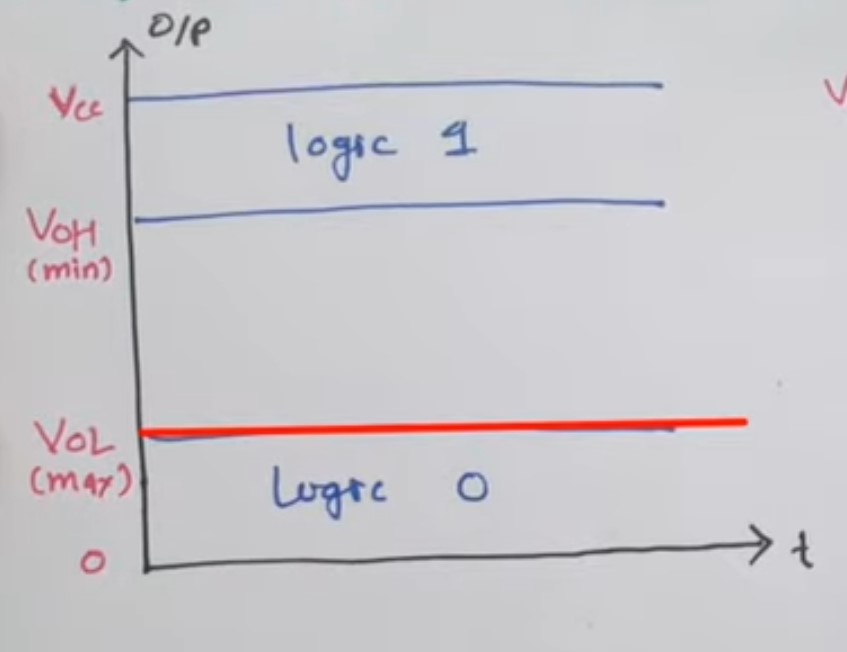 O/P
Vcc
logic 1
VOH
(min)
VOL
(max)
logic 0
0
t
V